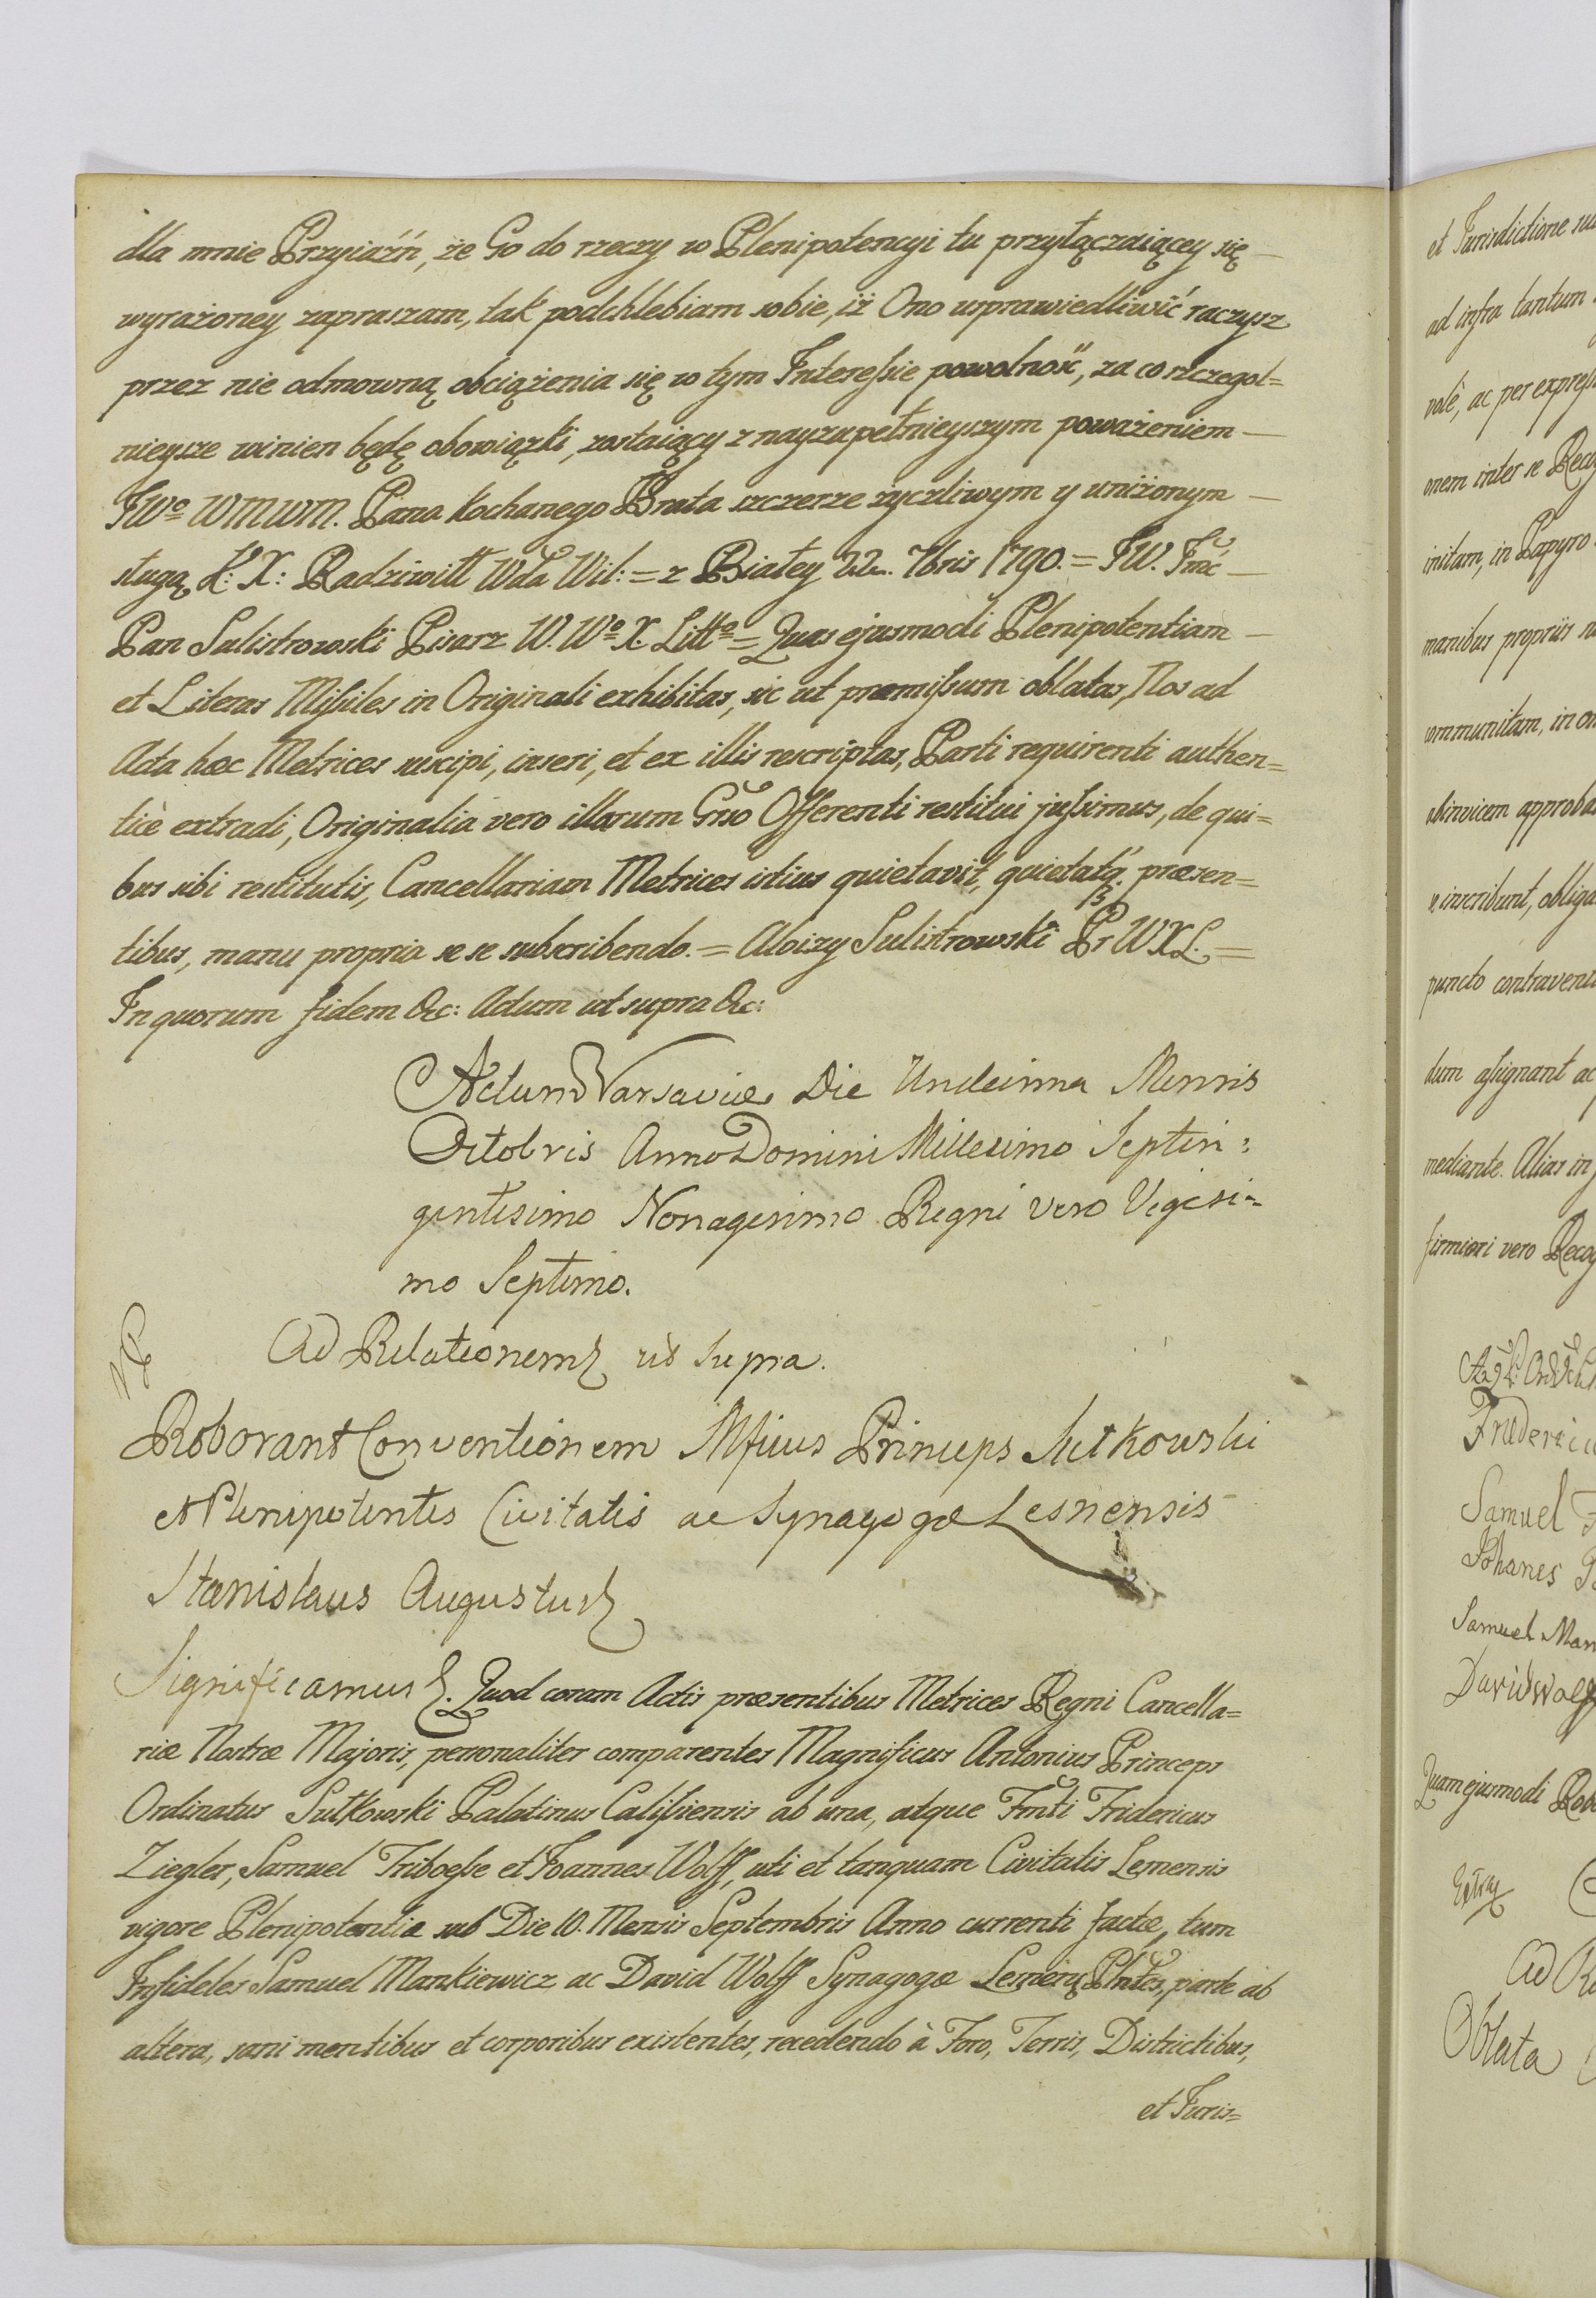 dla mnie Przyiaźń, że Go do rzeczy w Plenipotencyi tu przyłączaiącey się —
wyrażoney, zapraszam, tak podchlebiam sobie, iż Ono usprawiedliwić raczysz
przez nie odmowną obciążenia się w tym Interessie powolność, za co szczegol=
nieysze winien będę obowiązki, zostaiący z nayzupełnieyszym poważeniem —
JWo WMWM. Pana Kochanego Brata szczerze życzliwym y uniżonym —
sługą K: X: Radziwiłł Wda Wil: = z Białey 22. 7bris 1790. = JW. Imć —
Pan Sulistrowski Pisarz W. Wo X. Litto = Quas ejusmodi Plenipotentiam —
et Literas Missiles in Originali exhibitas, sic ut præmissum oblatas, Nos ad
Acta hæc Metrices suscipi, inseri, et ex illis rescriptas, Parti requirenti authen=
ticè extradi, Originalia vero illorum Gnso Offerenti restitui jussimus, de qui=
bus sibi restitutis, Cancellariam Metrices istius quietavit, quietatq. præsen=
tibus, manu propria se se subscribendo. = Aloizy Sulistrowski Pr WXL. =
In quorum fidem &c: Actum ut supra &c:
Actum Varsaviæ Die Undecima Mensis
Octobris Anno Domini Millesimo Septin=
gentesimo Nonagesimo Regni vero Vigesi=
mo Septimo.
Ad Relationem ut supra.
Roborant Conventionem Mficus Princeps Sutkowski
et Plenipotentes Civitatis ac Synagogæ Lesnensis
Stanislaus Augustus
Significamus. Quod coram Actis præsentibus Metrices Regni Cancella=
riæ Nostræ Majoris, personaliter comparentes Magnificus Antonius Princeps
Ordinatus Sutkowski Palatinus Calissiensis ab una, atque Fmti Fridericus
Ziegler, Samuel Triboesse et Joannes Wolff, uti et tanquam Civitatis Lesnensis
vigore Plenipotentiæ sub Die 10. Mensis Septembris Anno currenti factæ, tum
Infideles Samuel Mankiewicz ac David Wolff Synagogæ Plntes, parte ab
altera, sani mentibus et corporibus existentes, recedendo à Foro, Terris, Districtibus,
et Juris=
et Jurisdictione
ad infra tantum
ac per
onem inter se
initam, in Papyro
manibus propriis
communitam, in
abinvicem
inscribunt,
puncto
dum assignant ac
mediante. Alias in
firmiori vero
Samuel
Johanes
Samuel
David Wolff
Quam ejusmodi
Ad
Oblata